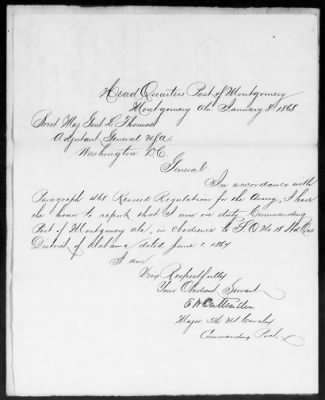 Head Quarters Post of Montgomery
Montgomery Ala January 8" 1868
Brvt Maj Genl L Thomas
Adjutant General U.S.A.
Washington D.C.
General
In accordance with
Paragraph 468 Revised Regulations for the Army, I have
the honor to report that I am on duty Commanding
Post of Montgomery Ala, in obedience to S.O. No 18 Hd Qrs
District of Alabama dated June 1. 1867
I am
Very Respectfully
Your Obedient Servant
Major 5th US Cavalry
Commanding Post